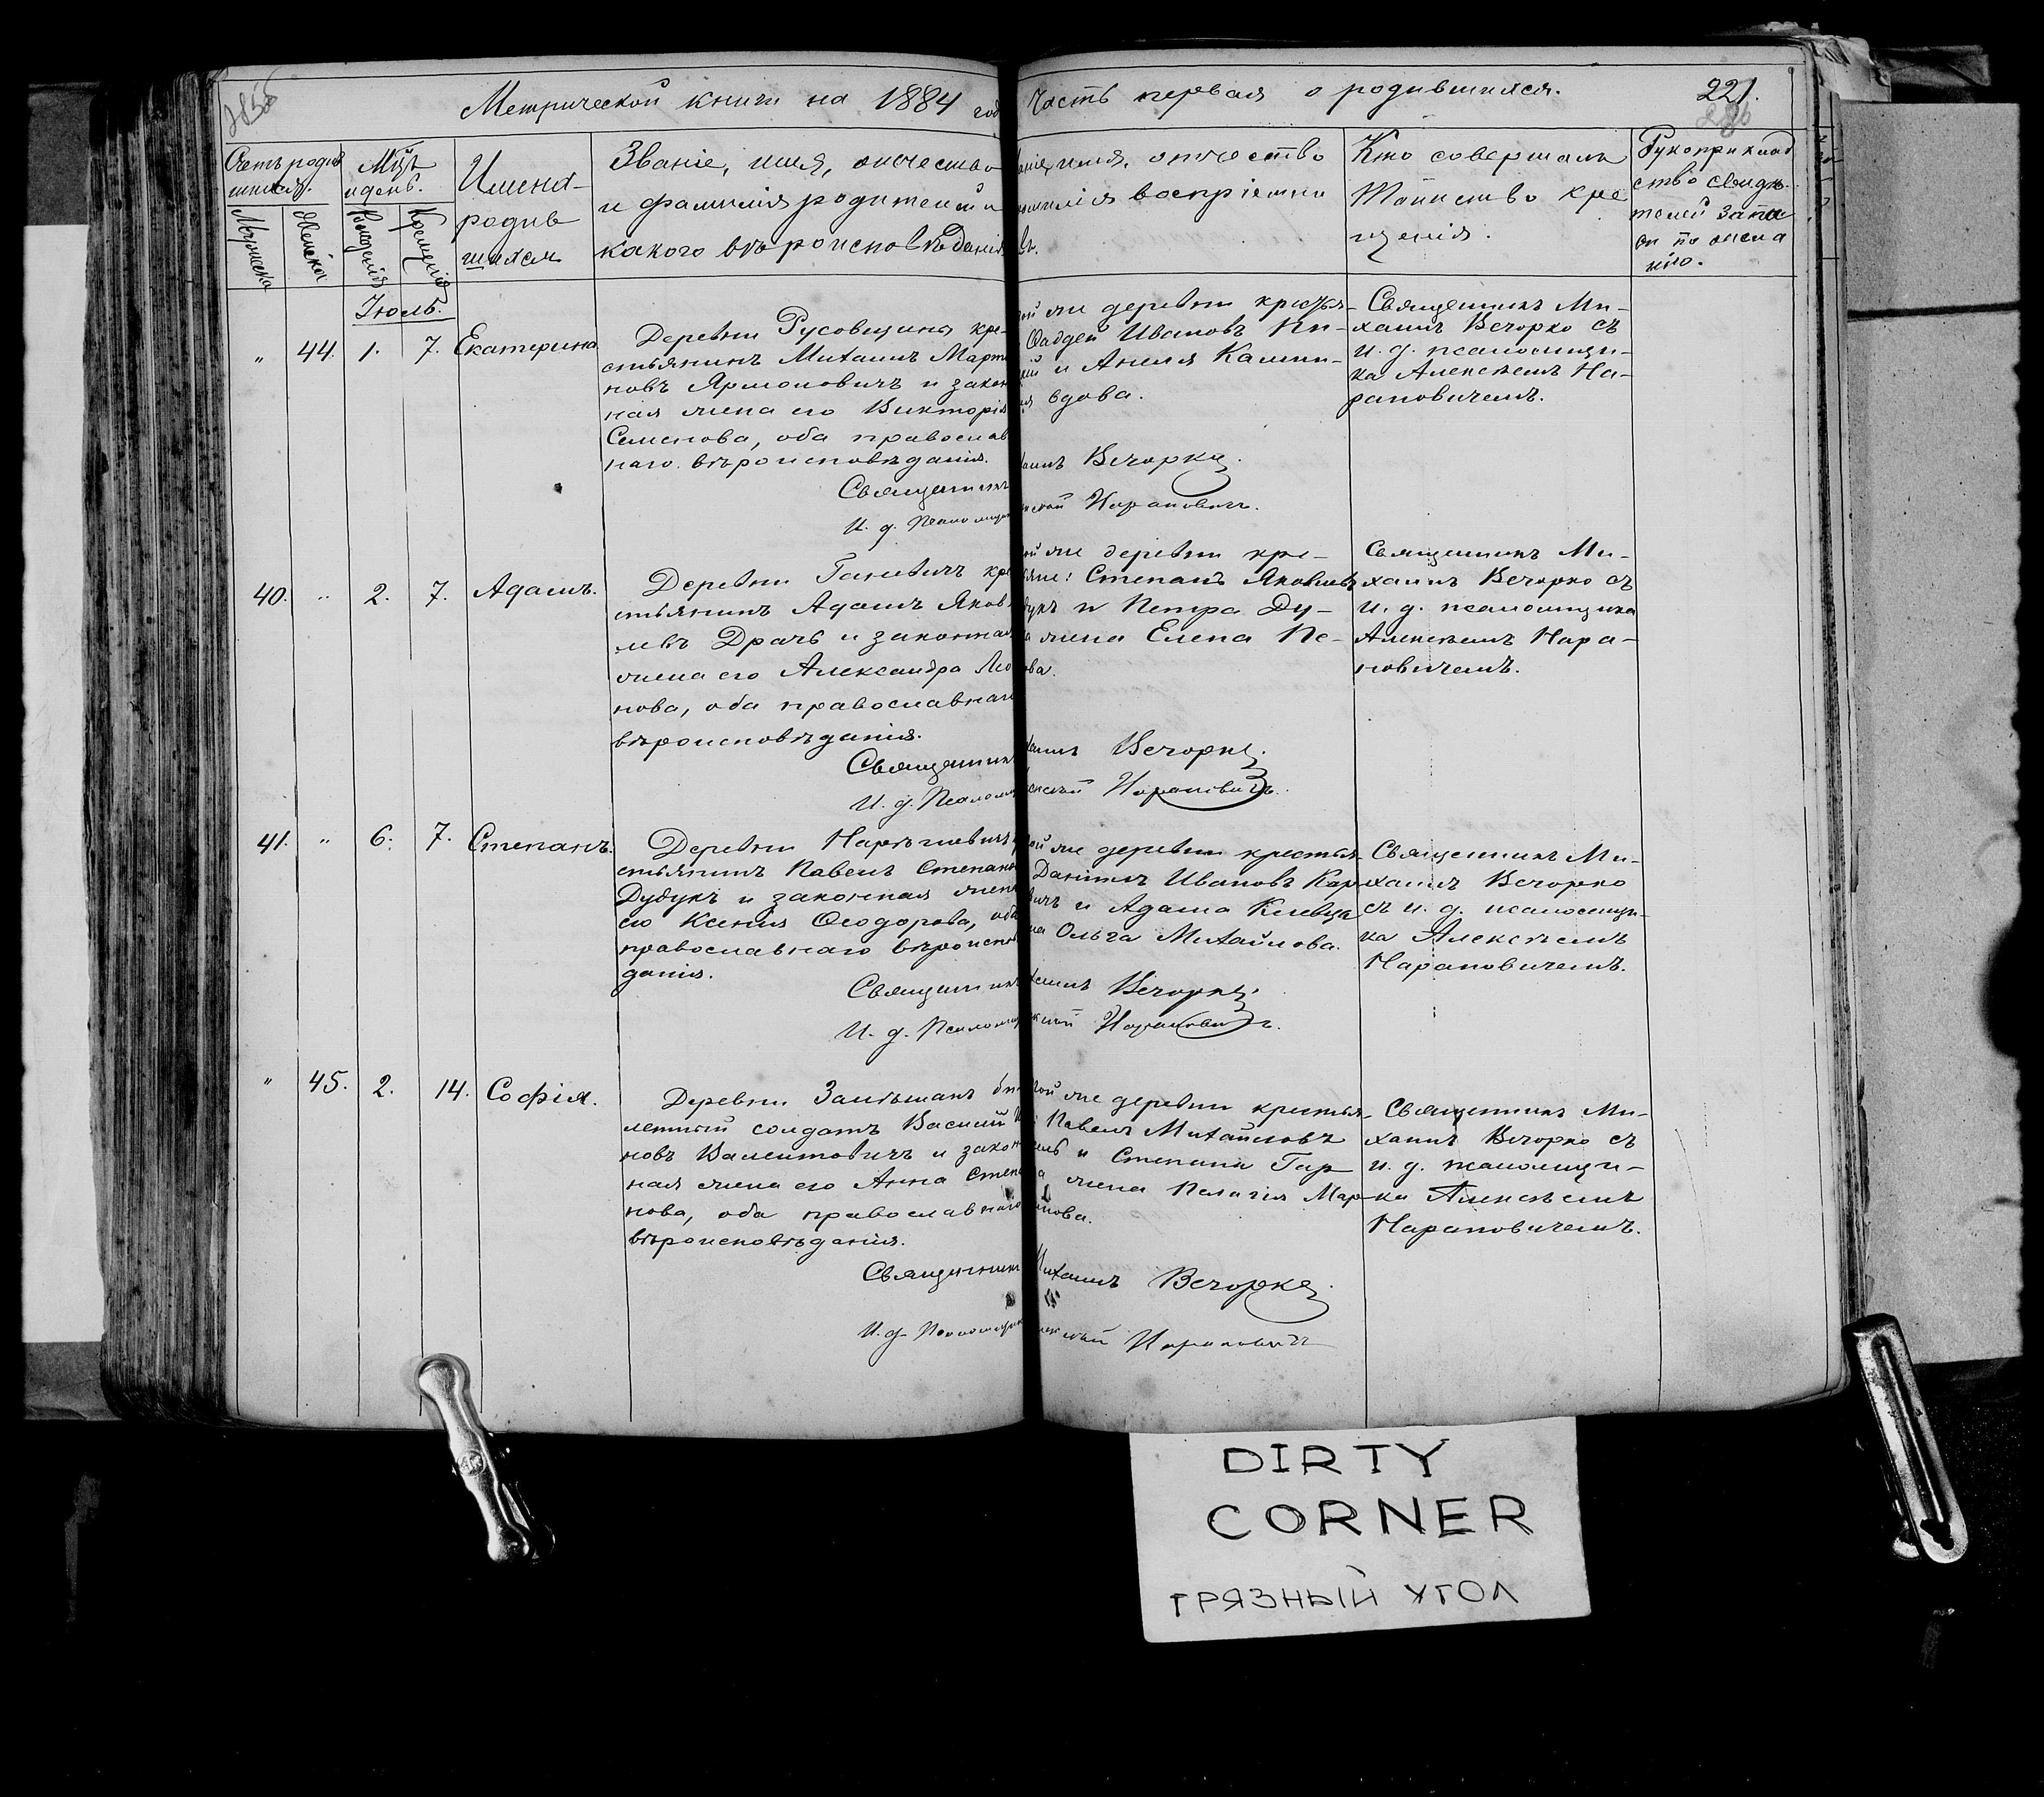 Метрической книги на 1884 год
Часть первая о родившихся.
221.
Счетъ родив
шихся.
Мѣц
и день.
Имена
родив
шихся
Званіе, имя, отчество
и фамилія родителей и
какого вѣроисповѣданія
имя, отчество
воспріемни
Кто совершалъ
Таинство кре
щенія.
Рукоприклад
ство свидѣ
телей записи
по жела
нію.
Рожденія
Крещенія
Іюль.
" 44. 1. 7. Екатерина
Деревни Русовщина кре-
стьянинъ Михаилъ Марти
новъ Ярмоловичъ и закон
ная жена его Викторія
Семенова, оба православ
наго вѣроисповѣданія.
Священникъ
И. д. Псаломщи
той же деревни крестья-
Фаддей Ивановъ
и Анеля Калин-
вдова.
Михаилъ Вечорко
Нарановичъ.
Священникъ Ми-
хаилъ Вечорко съ
и. д. псаломщи-
ка Алексѣемъ На-
рановичемъ.
40. " 2. 7. Адамъ.
Деревни Ганевичъ кре
стьянинъ Адамъ Яков
левъ Драчъ и законная
жена его Александра
нова, оба православнаго
вѣроисповѣданія.
Священникъ
И. д. Псаломщи
той же деревни кре-
стьяне: Степанъ Яковлевъ
и Петра Ду-
жена Елена Пе-
ова.
Михаилъ Вечорко
Нарановичъ.
Священникъ Ми-
хаилъ Вечорко съ
и. д. псаломщика
Алексѣемъ Нара-
новичемъ.
41. " 6. 7. Степанъ.
Деревни
стьянинъ Павелъ Степано
Дудукъ и законная жена
его Ксенія Ѳеодорова, оба
православнаго вѣроисповѣ
данія.
Священникъ
И. д. Псаломщ
той же деревни крестья-
Даніилъ Ивановъ
и Адама
Ольга Михайлова.
Михаилъ Вечорко
Нарановичъ.
Священникъ Ми-
хаилъ Вечорко
съ и. д. псаломщи-
ка Алексѣемъ
Нарановичемъ.
" 45. 2. 14. Софія.
Деревни би
летный солдатъ Василій
новъ Валентовичъ и закон
ная жена его Анна Степа
нова, оба православнаго
вѣроисповѣданія.
Священникъ
И. д. Псаломщи
той же деревни крестья-
Павелъ Михайловъ
и Степана Гар
жена Пелагія Мар-
нова.
Михаилъ Вечорко
Нарановичъ
Священникъ Ми-
хаилъ Вечорко съ
и. д. псаломщи-
ка Алексѣемъ
Нарановичемъ.
DIRTY
CORNER
ГРЯЗНЫЙ УГОЛ